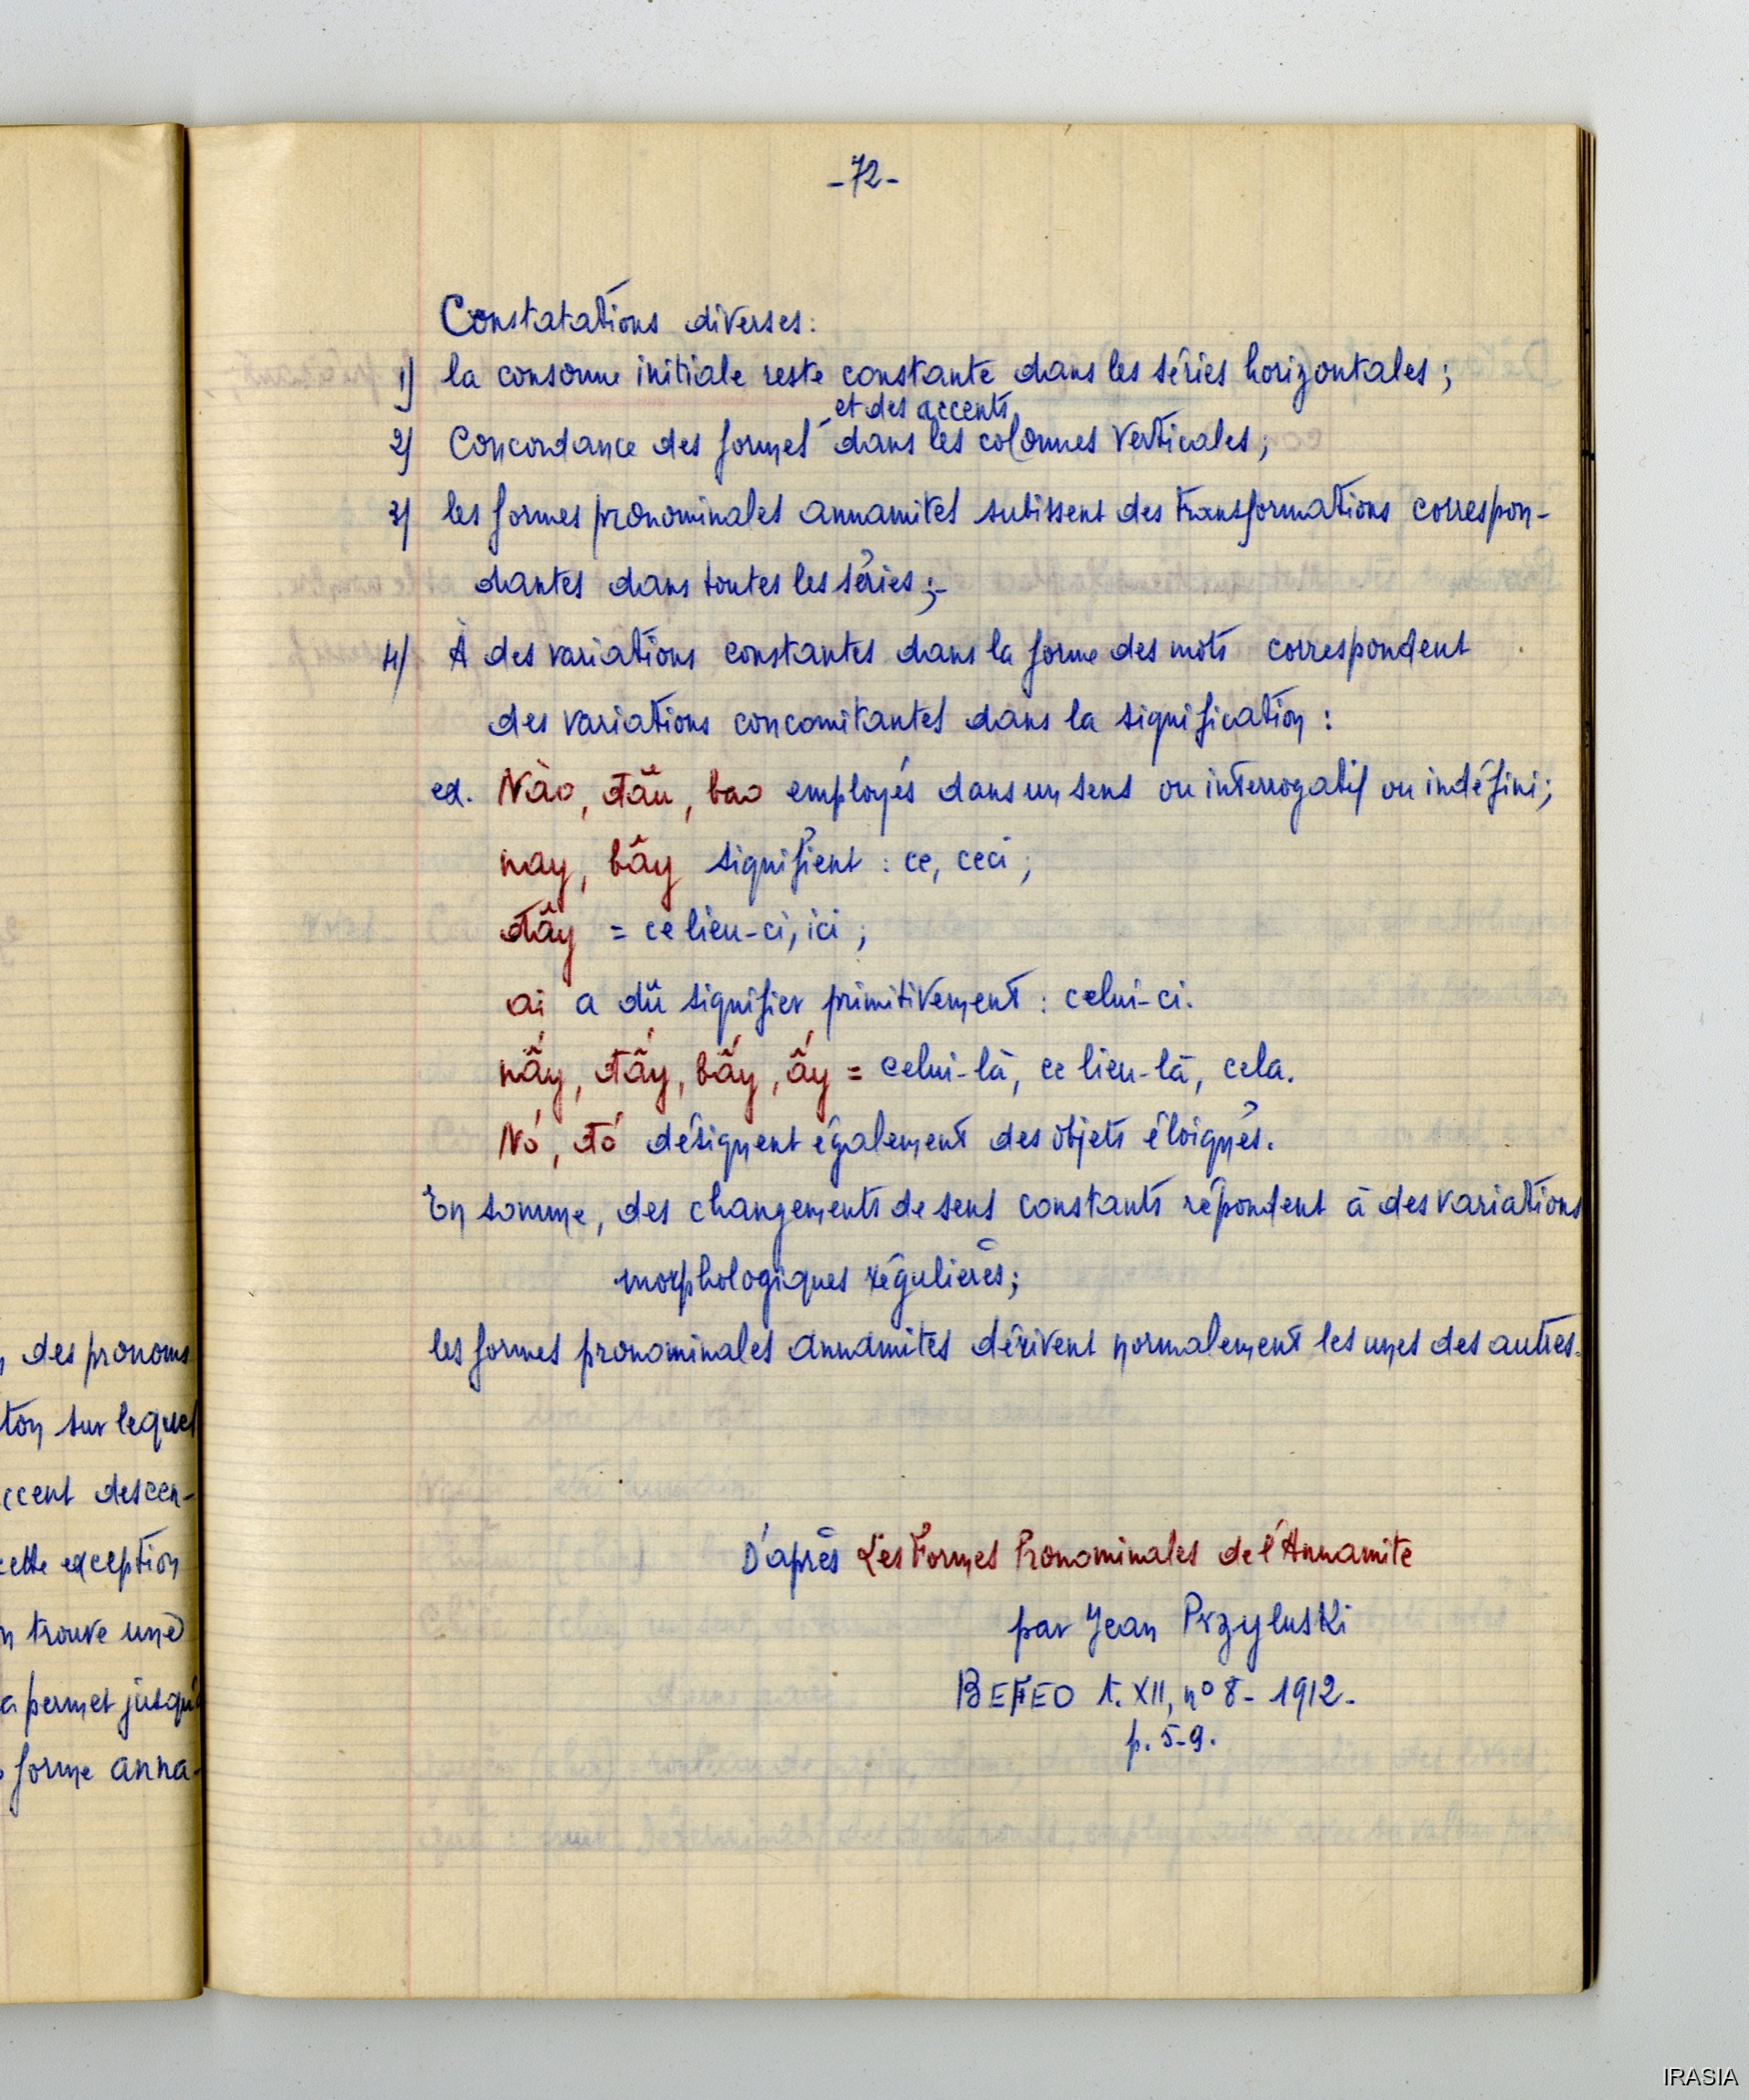 -72-
Constatations diverses:
1) la consonne initiale reste constante dans les séries horizontales;
et des accents
2) Concordance des formes dans les colonnes verticales;
3) les formes pronominales annamites subissent des transformations correspon-
dantes dans toutes les séries;-
4) À des variations constantes dans la forme des mots correspondent
des variations concomitantes dans la signification :
ex. Nào, đâu, bao employés dans un sens ou interrogatif ou indéfini;
nay, bây signifient : ce, ceci;
đây = ce lieu-ci, ici;
ai a dû signifier primitivement : celui-ci.
nấy, đấy, bấy, ấy = celui-là, ce lieu-là, cela.
Nó, đó désignent également des objets éloignés.
En somme, des changements de sens constants répondent à des variations
morphologiques régulières;
les formes pronominales annamites dérivent normalement les unes des autres.
D'après Les Formes Pronominales de l'Annamite
par Jean Przyluski
BEFEO t. XII, nº 8 - 1912-
p. 5-9.
des pronoms
ton sur lequel
ccent descen-
cette exception
n trouve une
a permet jusqu'à
forme anna-
IRASIA